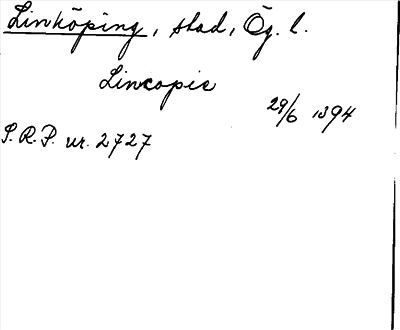 Linköping, stad, Ög. l.
Lincopie
29/6 1394
S.R.P. nr. 2727